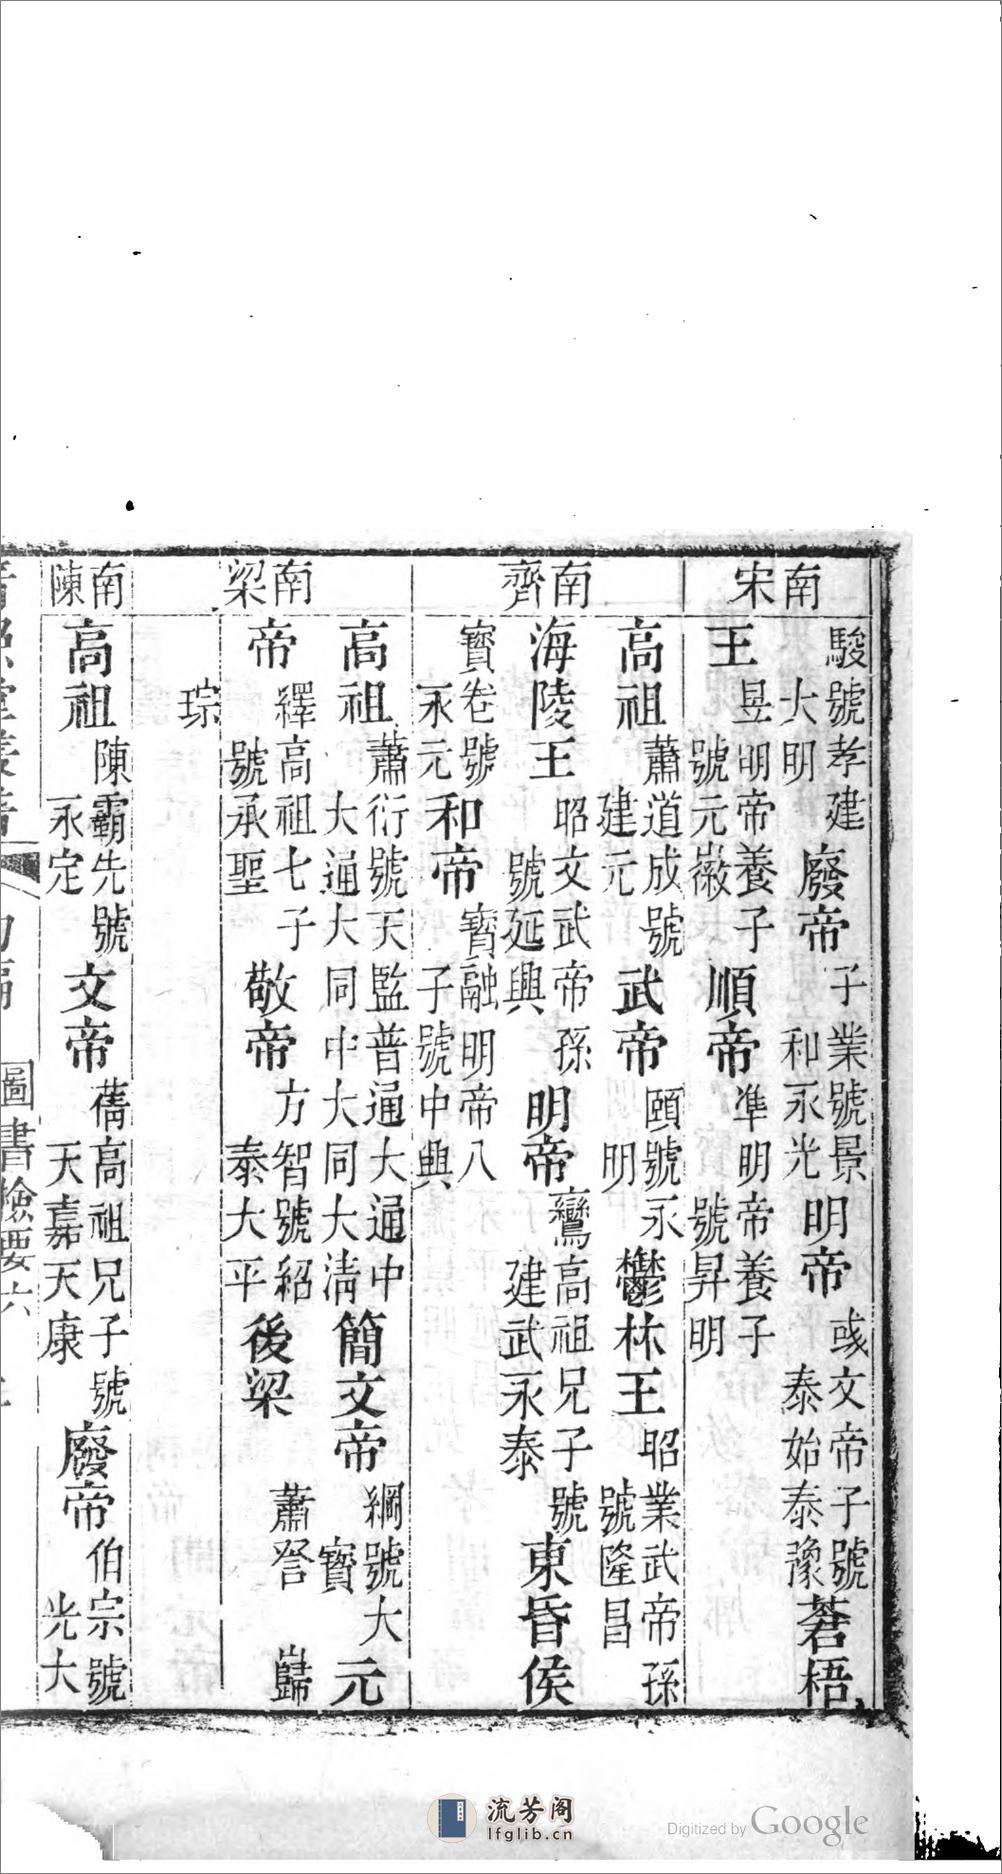 南宋
駿號孝建
大明
廢帝
子業號景
和永光
明帝
彧文帝子號
泰始泰豫
蒼梧
王
昱明帝養子
號元徽
順帝
準明帝養子
號昇明
南齊
高祖
蕭道成號
建元
武帝
頤號永
明
鬱林王
昭業武帝孫
號隆昌
海陵王
昭文武帝孫
號延興
明帝
鸞高祖兄子號
建武永泰
東昏侯
寳卷號
永元
和帝
寳融明帝八
子號中興
南梁
高祖
蕭衍號天監普通大通中
大通大同中大同大清
簡文帝
綱號大
寳
元
帝
繹高祖七子
號承聖
敬帝
方智號紹
泰大平
後梁
蕭詧
巋
琮
南陳
高祖
陳霸先號
永定
文帝
蒨高祖兄子號
天嘉天康
廢帝
伯宗號
光大
圖書檢要六
流芳阁
lfglib.cn
Digitized by Google